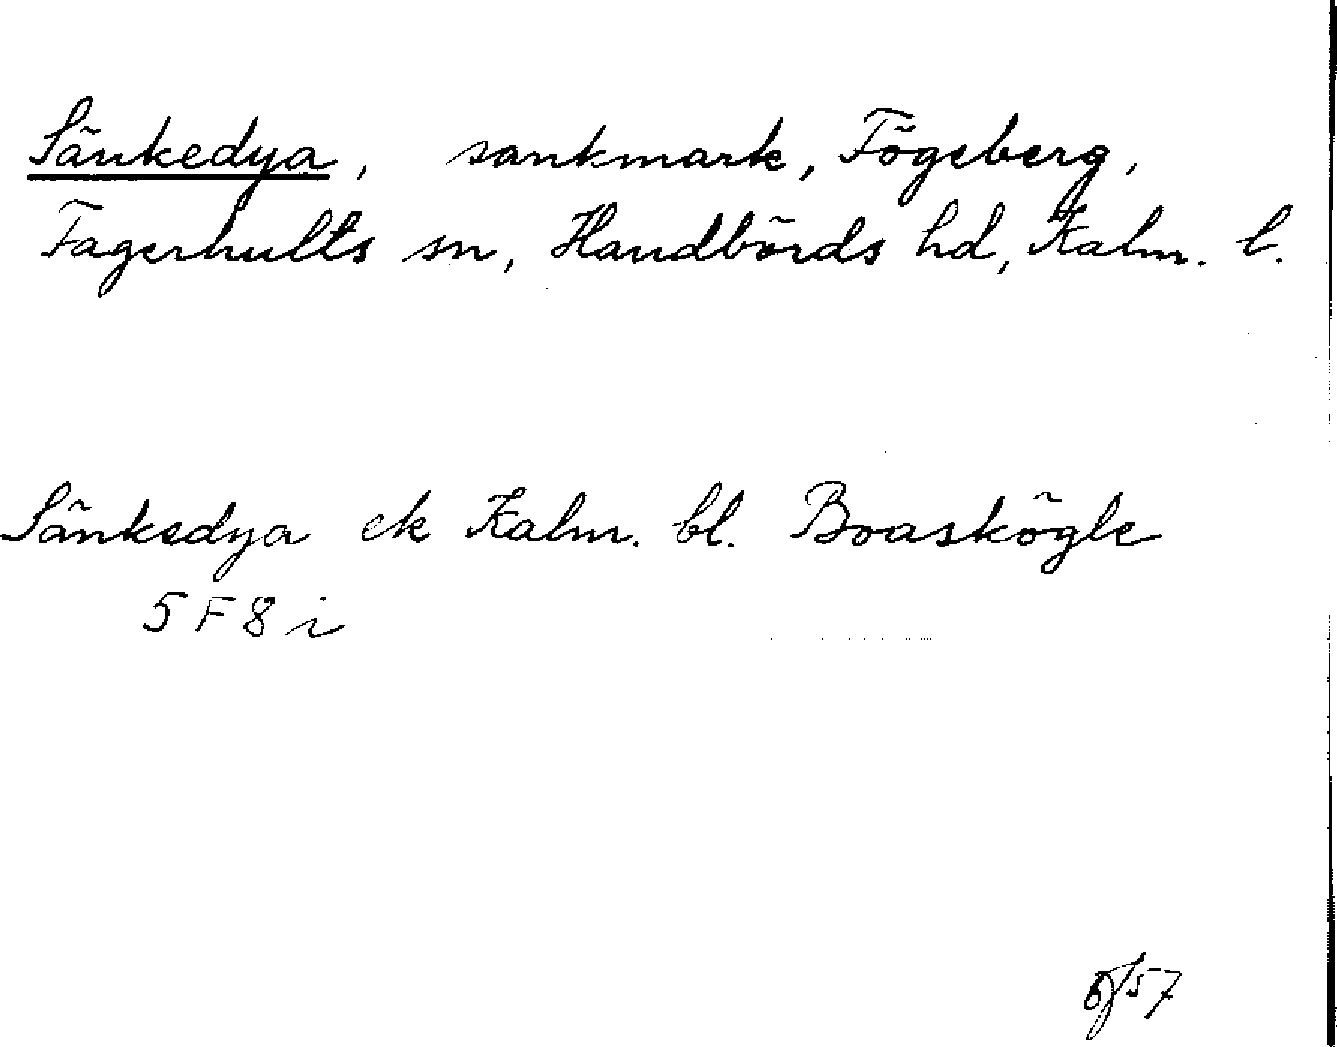 Sänkedya, sankmark, Fögeberg,
Fagerhults sn, Handbörds hd, Kalm. l.
Sänkedya ek Kalm. bl. Boaskögle
5 F 8 i
57